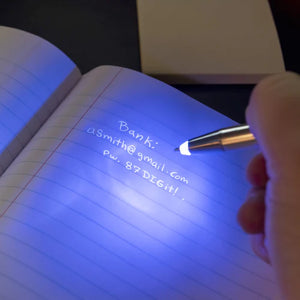 Bank:
asmith@gmail.com
pw. 87DIGit!.